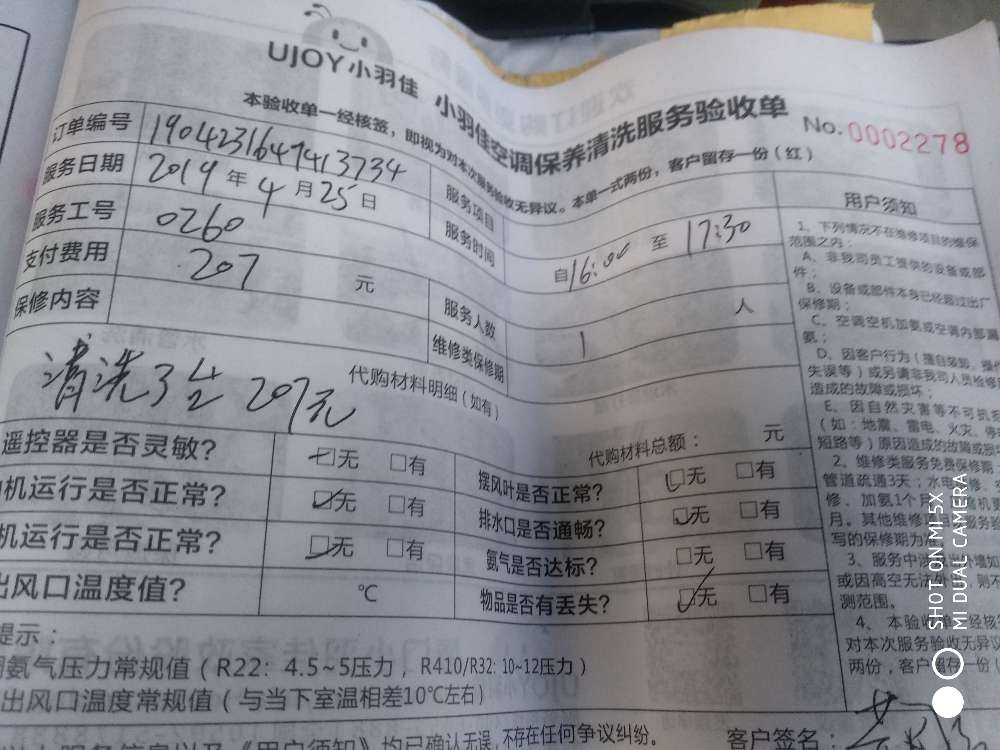 UJOY小羽佳 小羽佳空调保养清洗服务验收单
No.0002278
本验收单一经核签，即视为对本次服务验收无异议。本单一式两份，客户留存一份（红）
订单编号 1904231647413734 服务项目
服务日期 2019年4月25日 服务时间 自16:00至17:30
服务工号 0260
支付费用 207 元 服务人数 1 人
保修内容 维修类保修期
清洗3台 207元
代购材料明细（如有）
代购材料总额： 元
遥控器是否灵敏？ □无 □有 摆风叶是否正常？ □无 □有
机运行是否正常？ □无 □有 排水口是否通畅？ □无 □有
机运行是否正常？ □无 □有 氨气是否达标？ □无 □有
出风口温度值？ ℃ 物品是否有丢失？ □无 □有
提示：
氨气压力常规值（R22：4.5~5压力，R410/R32: 10~12压力）
出风口温度常规值（与当下室温相差10℃左右）
《用户须知》均已确认无误，不存在任何争议纠纷。
客户签名：
用户须知
1、下列情况不在维修项目的维保
范围之内：
A、非我司员工提供的设备或部
件；
B、设备或部件本身已经超过出厂
保修期；
C、空调空机加氨或空调内部漏
氨；
D、因客户行为（擅自装卸、操作
失误等）或另请非我司人员检修
造成的故障或损坏；
E、因自然灾害等不可抗
（如：地震、雷电、火灾、停
短路等）原因造成的故障或损
2、维修类服务免费保修期
管道疏通3天；水电
修、加氨1个月
月。其他维修
写的保修期为
3、服务中
或因高空无法
测范围。
4、本验收
对本次服务验收无异议
两份，客户留存一份
SHOT ON MI 5X
MI DUAL CAMERA